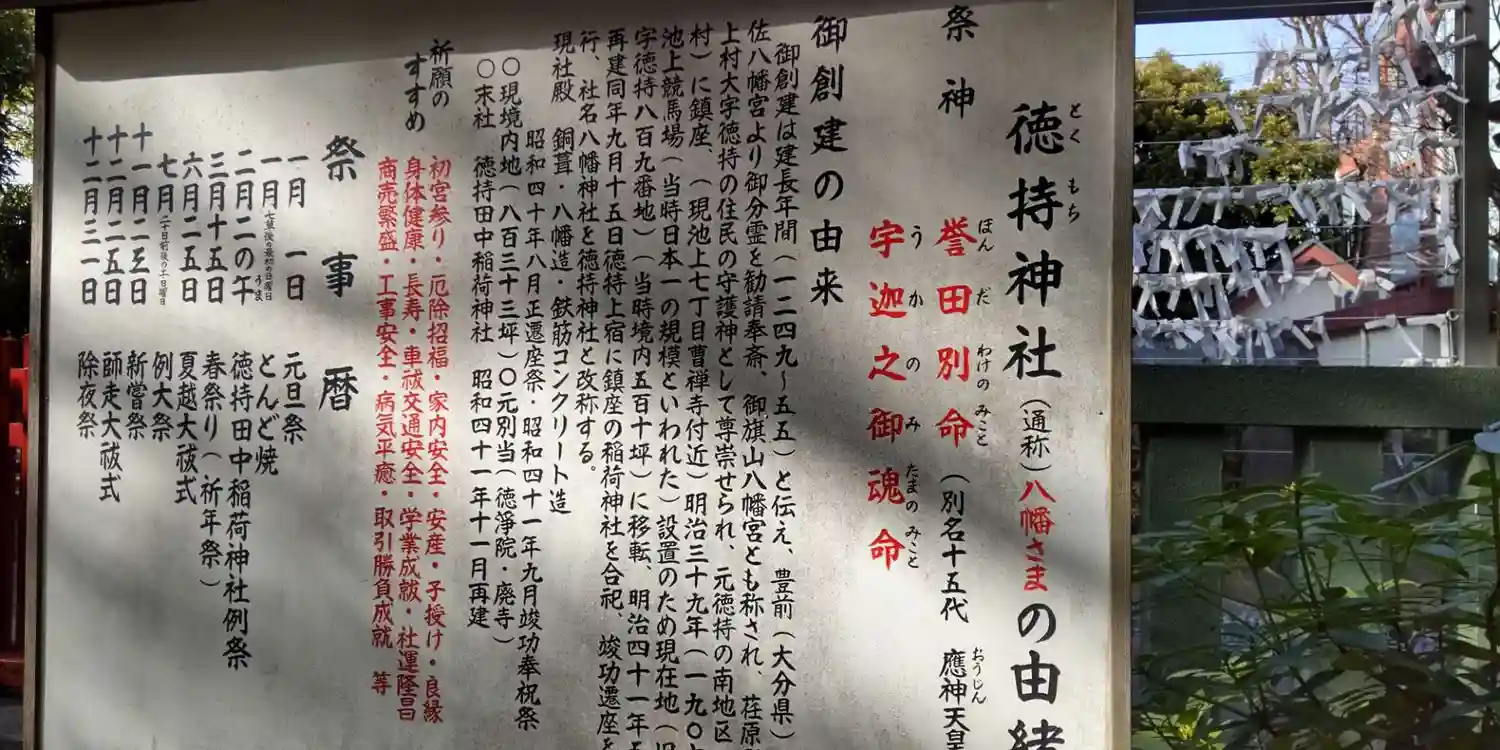 徳持神社（通称）八幡さまの由緒
とく もち
祭神
誉田別命（別名十五代 應神天皇
ほんだ わけの みこと
おうじん
宇迦之御魂命
うかのみたまの みこと
御創建の由来
御創建は建長年間（一二四九～五五）と伝え、豊前（大分県）
佐八幡宮より御分霊を勧請奉斎、御旗山八幡宮とも称され、荏原
上村大字徳持の住民の守護神として尊崇せられ、元徳持の南地区
村）に鎮座、（現池上七丁目曹禅寺付近）明治三十九年（一九〇
池上競馬場（当時日本一の規模といわれた）設置のため現在地（旧
宇徳持八百九番地）（当時境内五百十坪）に移転、明治四十一年五
再建同年九月十五日徳持上宿に鎮座の稲荷神社を合祀、竣功遷座を
行、社名八幡神社を徳持神社と改称する。
現社殿 銅葺・八幡造・鉄筋コンクリート造
昭和四十年八月正遷座祭・昭和四十一年九月竣功奉祝祭
〇現境内地（八百三十三坪）〇元別当（徳淨院・廃寺）
〇末社 徳持田中稲荷神社 昭和四十一年十一月再建
祈願のすすめ
初宮参り・厄除招福・家内安全・安産・子授け・良縁
身体健康・長寿・車祓交通安全・学業成就・社運隆昌
商売繁盛・工事安全・病気平癒・取引勝負成就 等
祭事暦
一月一日 元旦祭
一月七草後の最初の日曜日 とんど焼
二月二の午 徳持田中稲荷神社例祭
うま
三月十五日 春祭り（祈年祭）
六月二五日 夏越大祓式
七月二十日前後の土日曜日 例大祭
十一月二三日 新嘗祭
十二月二五日 師走大祓式
十二月三一日 除夜祭